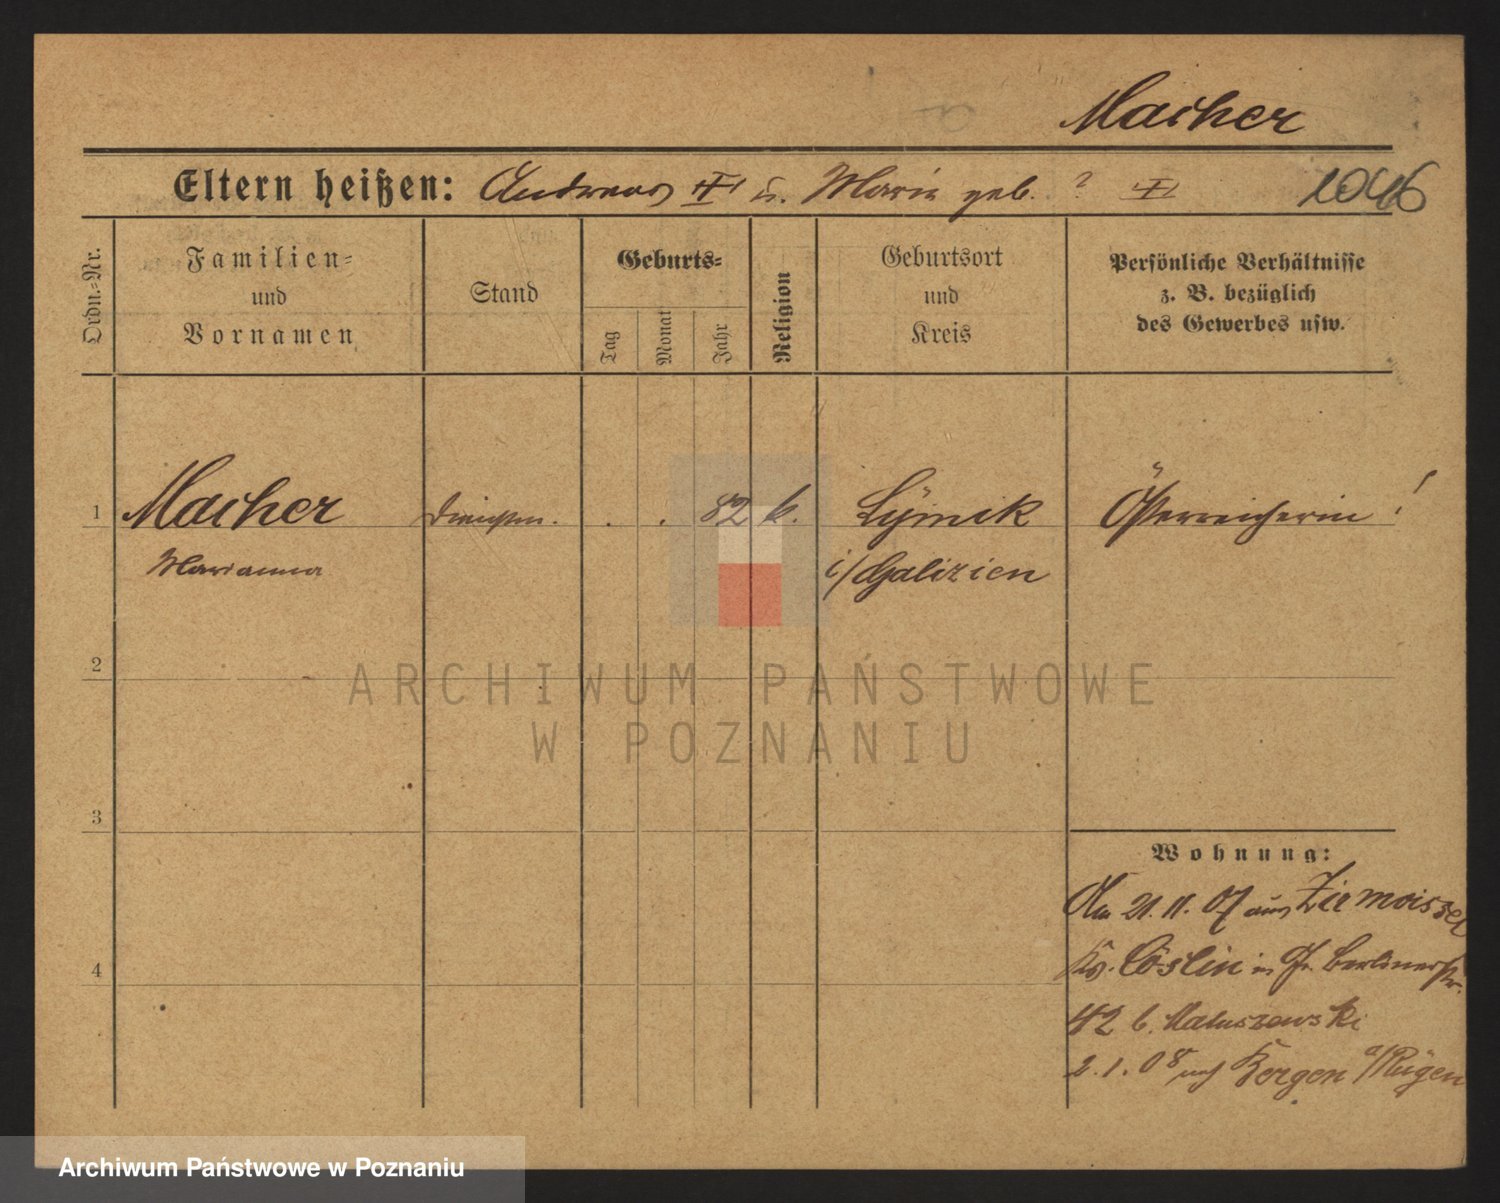 Macher
Eltern heißen: Andreas ㅤu. Maria geb. ?
1046
Ordn.-Nr.
Familien-
und
Vornamen
Stand
Geburts-
Tag
Monat
Jahr
Religion
Geburtsort
und
Kreis
Persönliche Verhältnisse
z. B. bezüglich
des Gewerbes usw.
1
Macher
Marianna
. . 82
k.
i/Galizien
Österreicherin !
2
3
4
Wohnung:
Am 21. 11. 07 aus
Kr. Cöslin in Gr. Berlinerstr.
42 b. Matuszewski
2. 1. 08 nach Bergen a/Rügen
ARCHIWUM PAŃSTWOWE
W POZNANIU
Archiwum Państwowe w Poznaniu